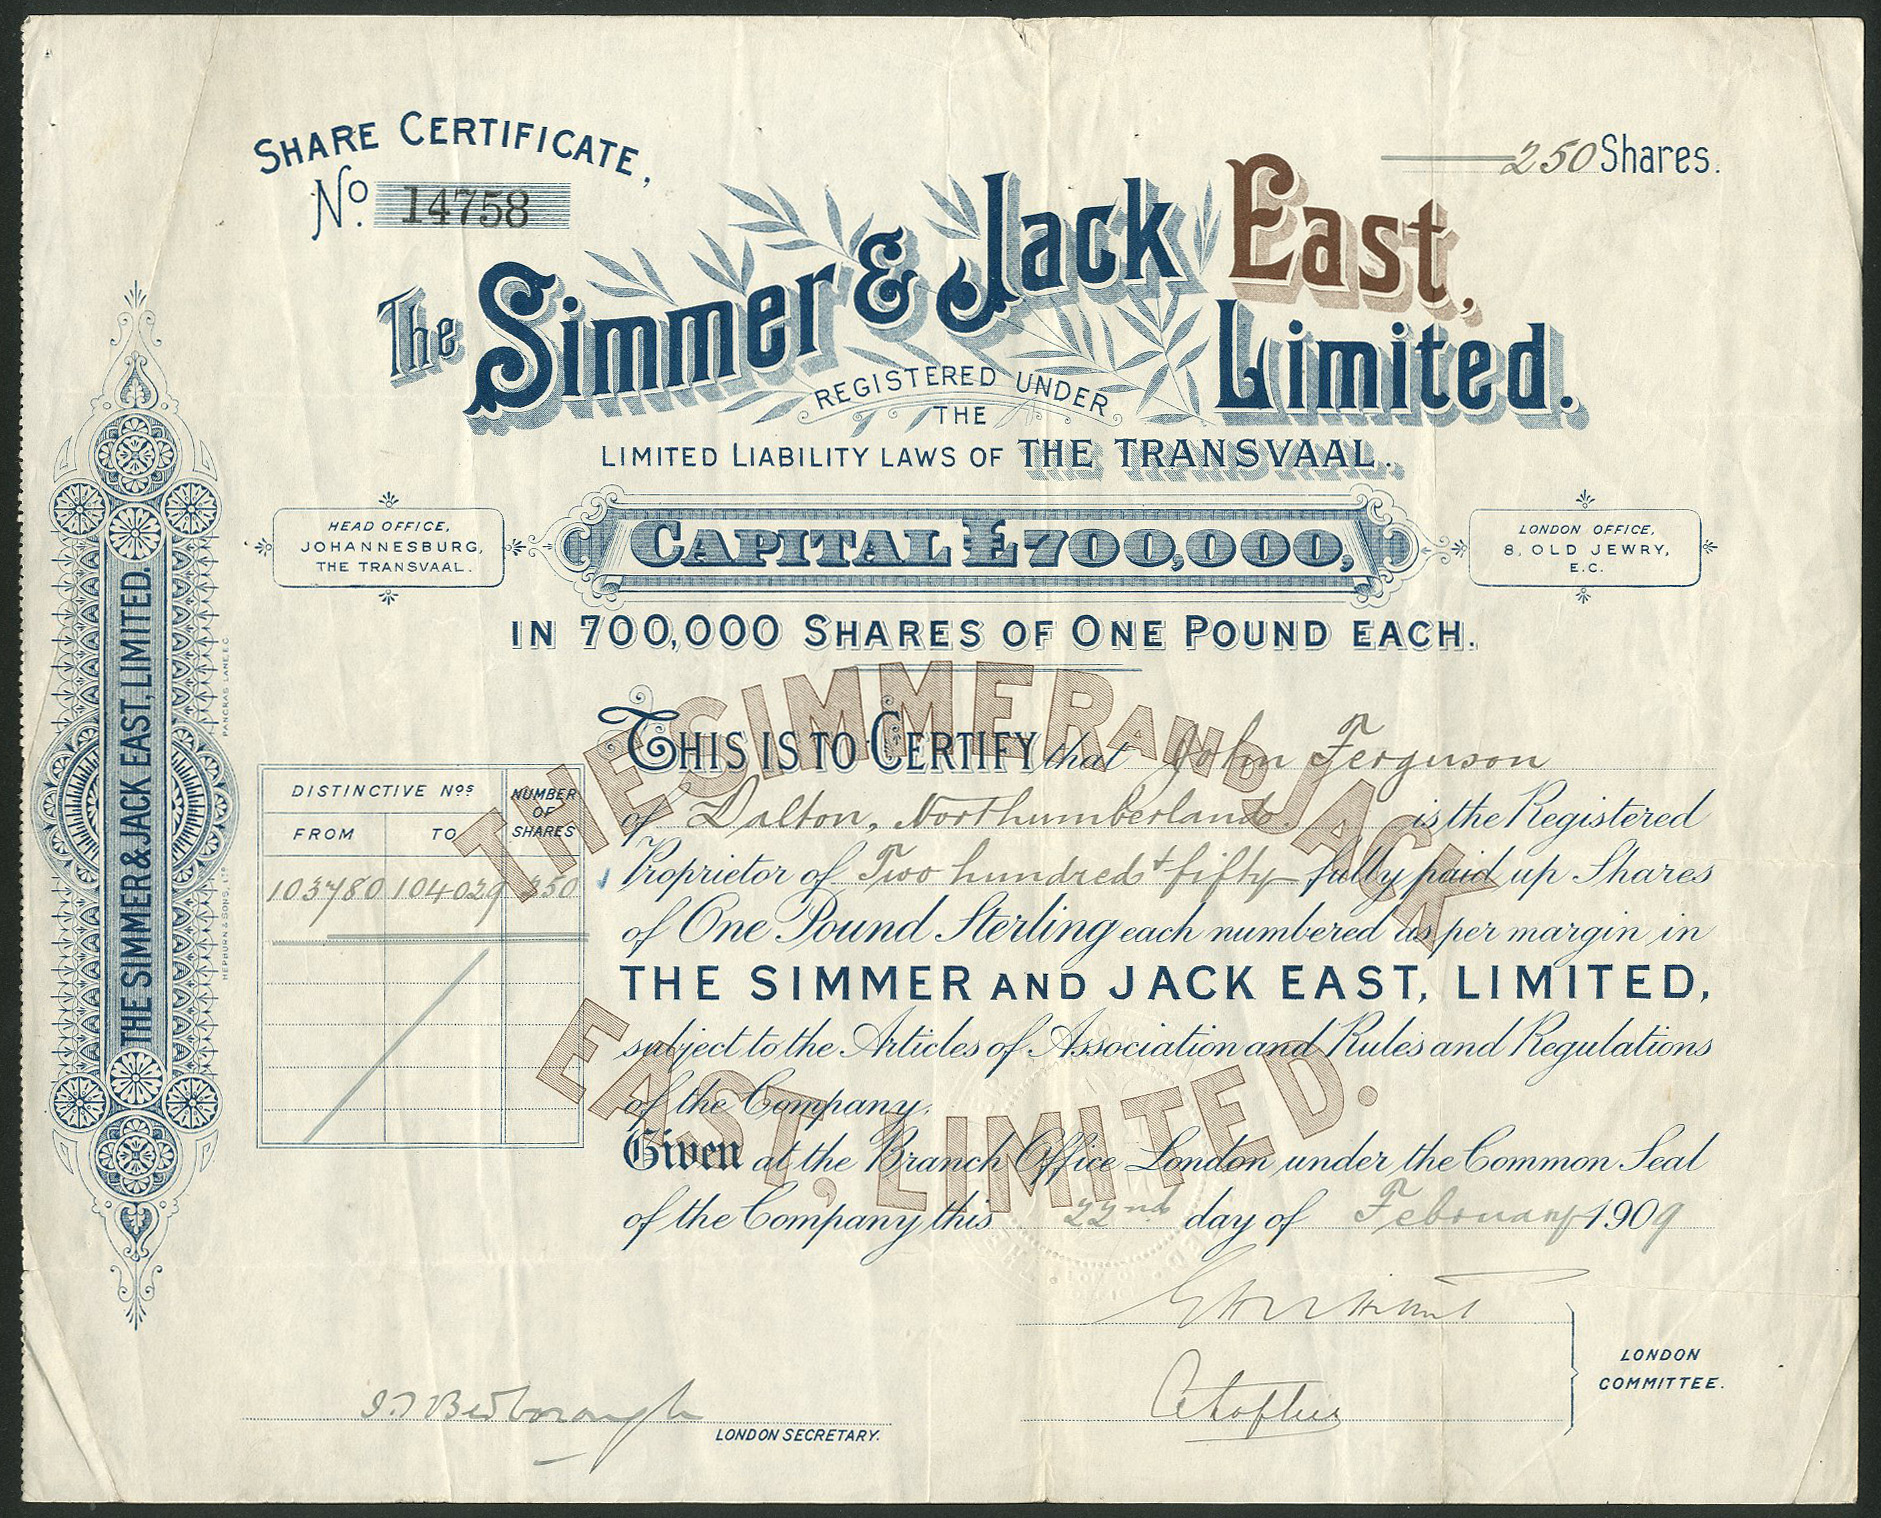 SHARE CERTIFICATE,
No. 14758
250 Shares.
The Simmer & Jack East, Limited.
REGISTERED UNDER
THE
LIMITED LIABILITY LAWS OF THE TRANSVAAL.
HEAD OFFICE,
JOHANNESBURG,
THE TRANSVAAL.
CAPITAL £700,000,
LONDON OFFICE,
8, OLD JEWRY,
E.C.
IN 700,000 SHARES OF ONE POUND EACH.
THE SIMMER AND JACK
EAST, LIMITED.
THE SIMMER & JACK EAST, LIMITED.
HEPBURN & SONS, LTD PANCRAS LANE, E.C.
DISTINCTIVE NOS NUMBER OF SHARES
FROM TO
103780 104029 250
THIS IS TO CERTIFY that John Ferguson
of Dalton, Northumberland. is the Registered
Proprietor of Two hundred + fifty fully paid up Shares
of One Pound Sterling each numbered as per margin in
THE SIMMER AND JACK EAST, LIMITED,
subject to the Articles of Association and Rules and Regulations
of the Company.
Given at the Branch Office London under the Common Seal
of the Company this 22nd day of February 1909
LONDON
COMMITTEE.
Bedborough
LONDON SECRETARY.